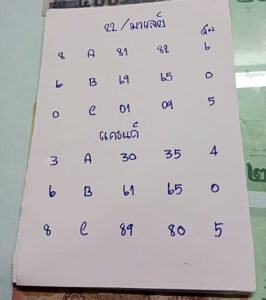 22/มาเลย์ รูด
8 A 81 82 6
6 B 69 65 0
0 C 01 09 5
แกรนด์
3 A 30 35 4
6 B 61 65 0
8 C 89 80 5